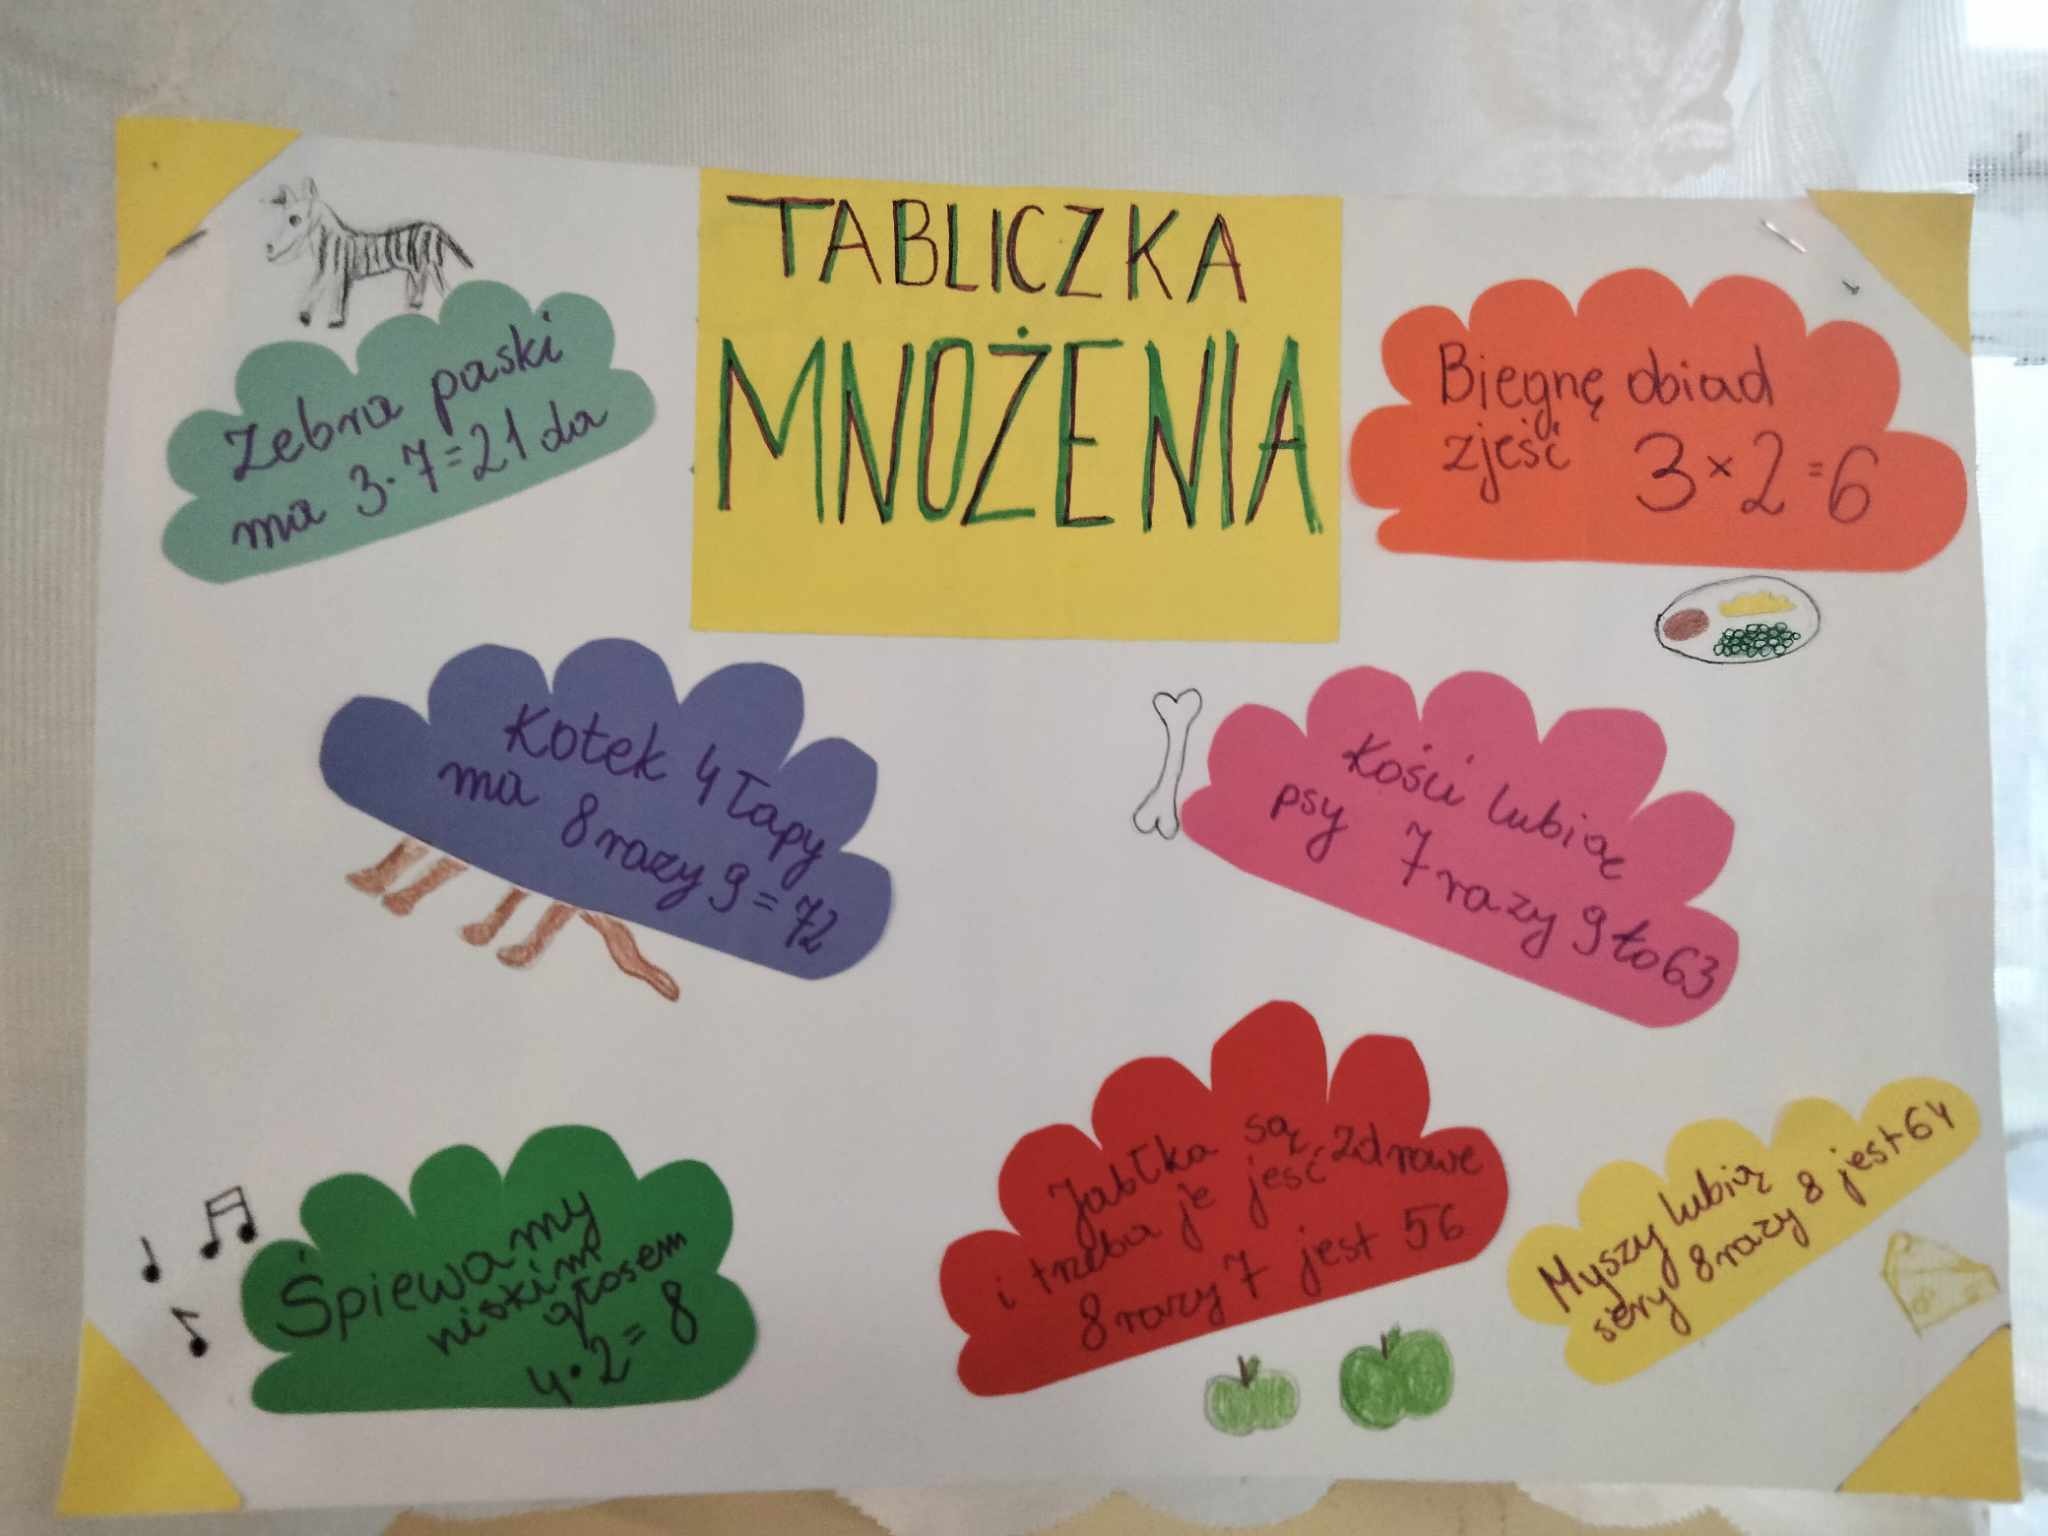 TABLICZKA
MNOŻENIA
Zebra paski
ma 3·7=21 da
Biegnę obiad
zjeść 3×2=6
Kotek 4 łapy
ma 8 razy 9=72
Kości lubią
psy 7 razy 9 to 63
Śpiewamy
niskim
głosem
4·2=8
Jabłka są zdrowe
i trzeba je jeść
8 razy 7 jest 56
Myszy lubią
sery 8 razy 8 jest 64